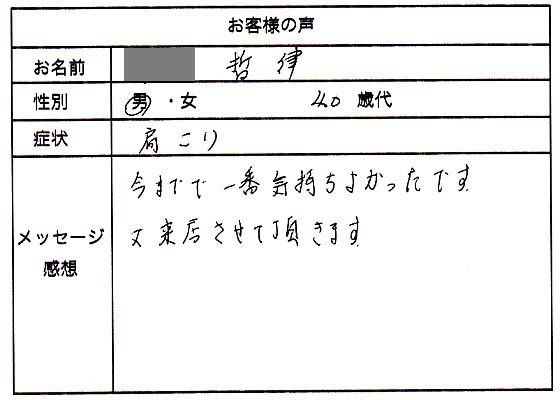 お客様の声
お名前 哲律
性別 男・女 40 歳代
症状 肩こり
メッセージ 今までで一番気持ちよかったです
感想 又来店させて頂きます